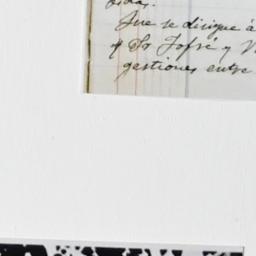 Que se dirique á
y Sr Jofré y
gestiones entre